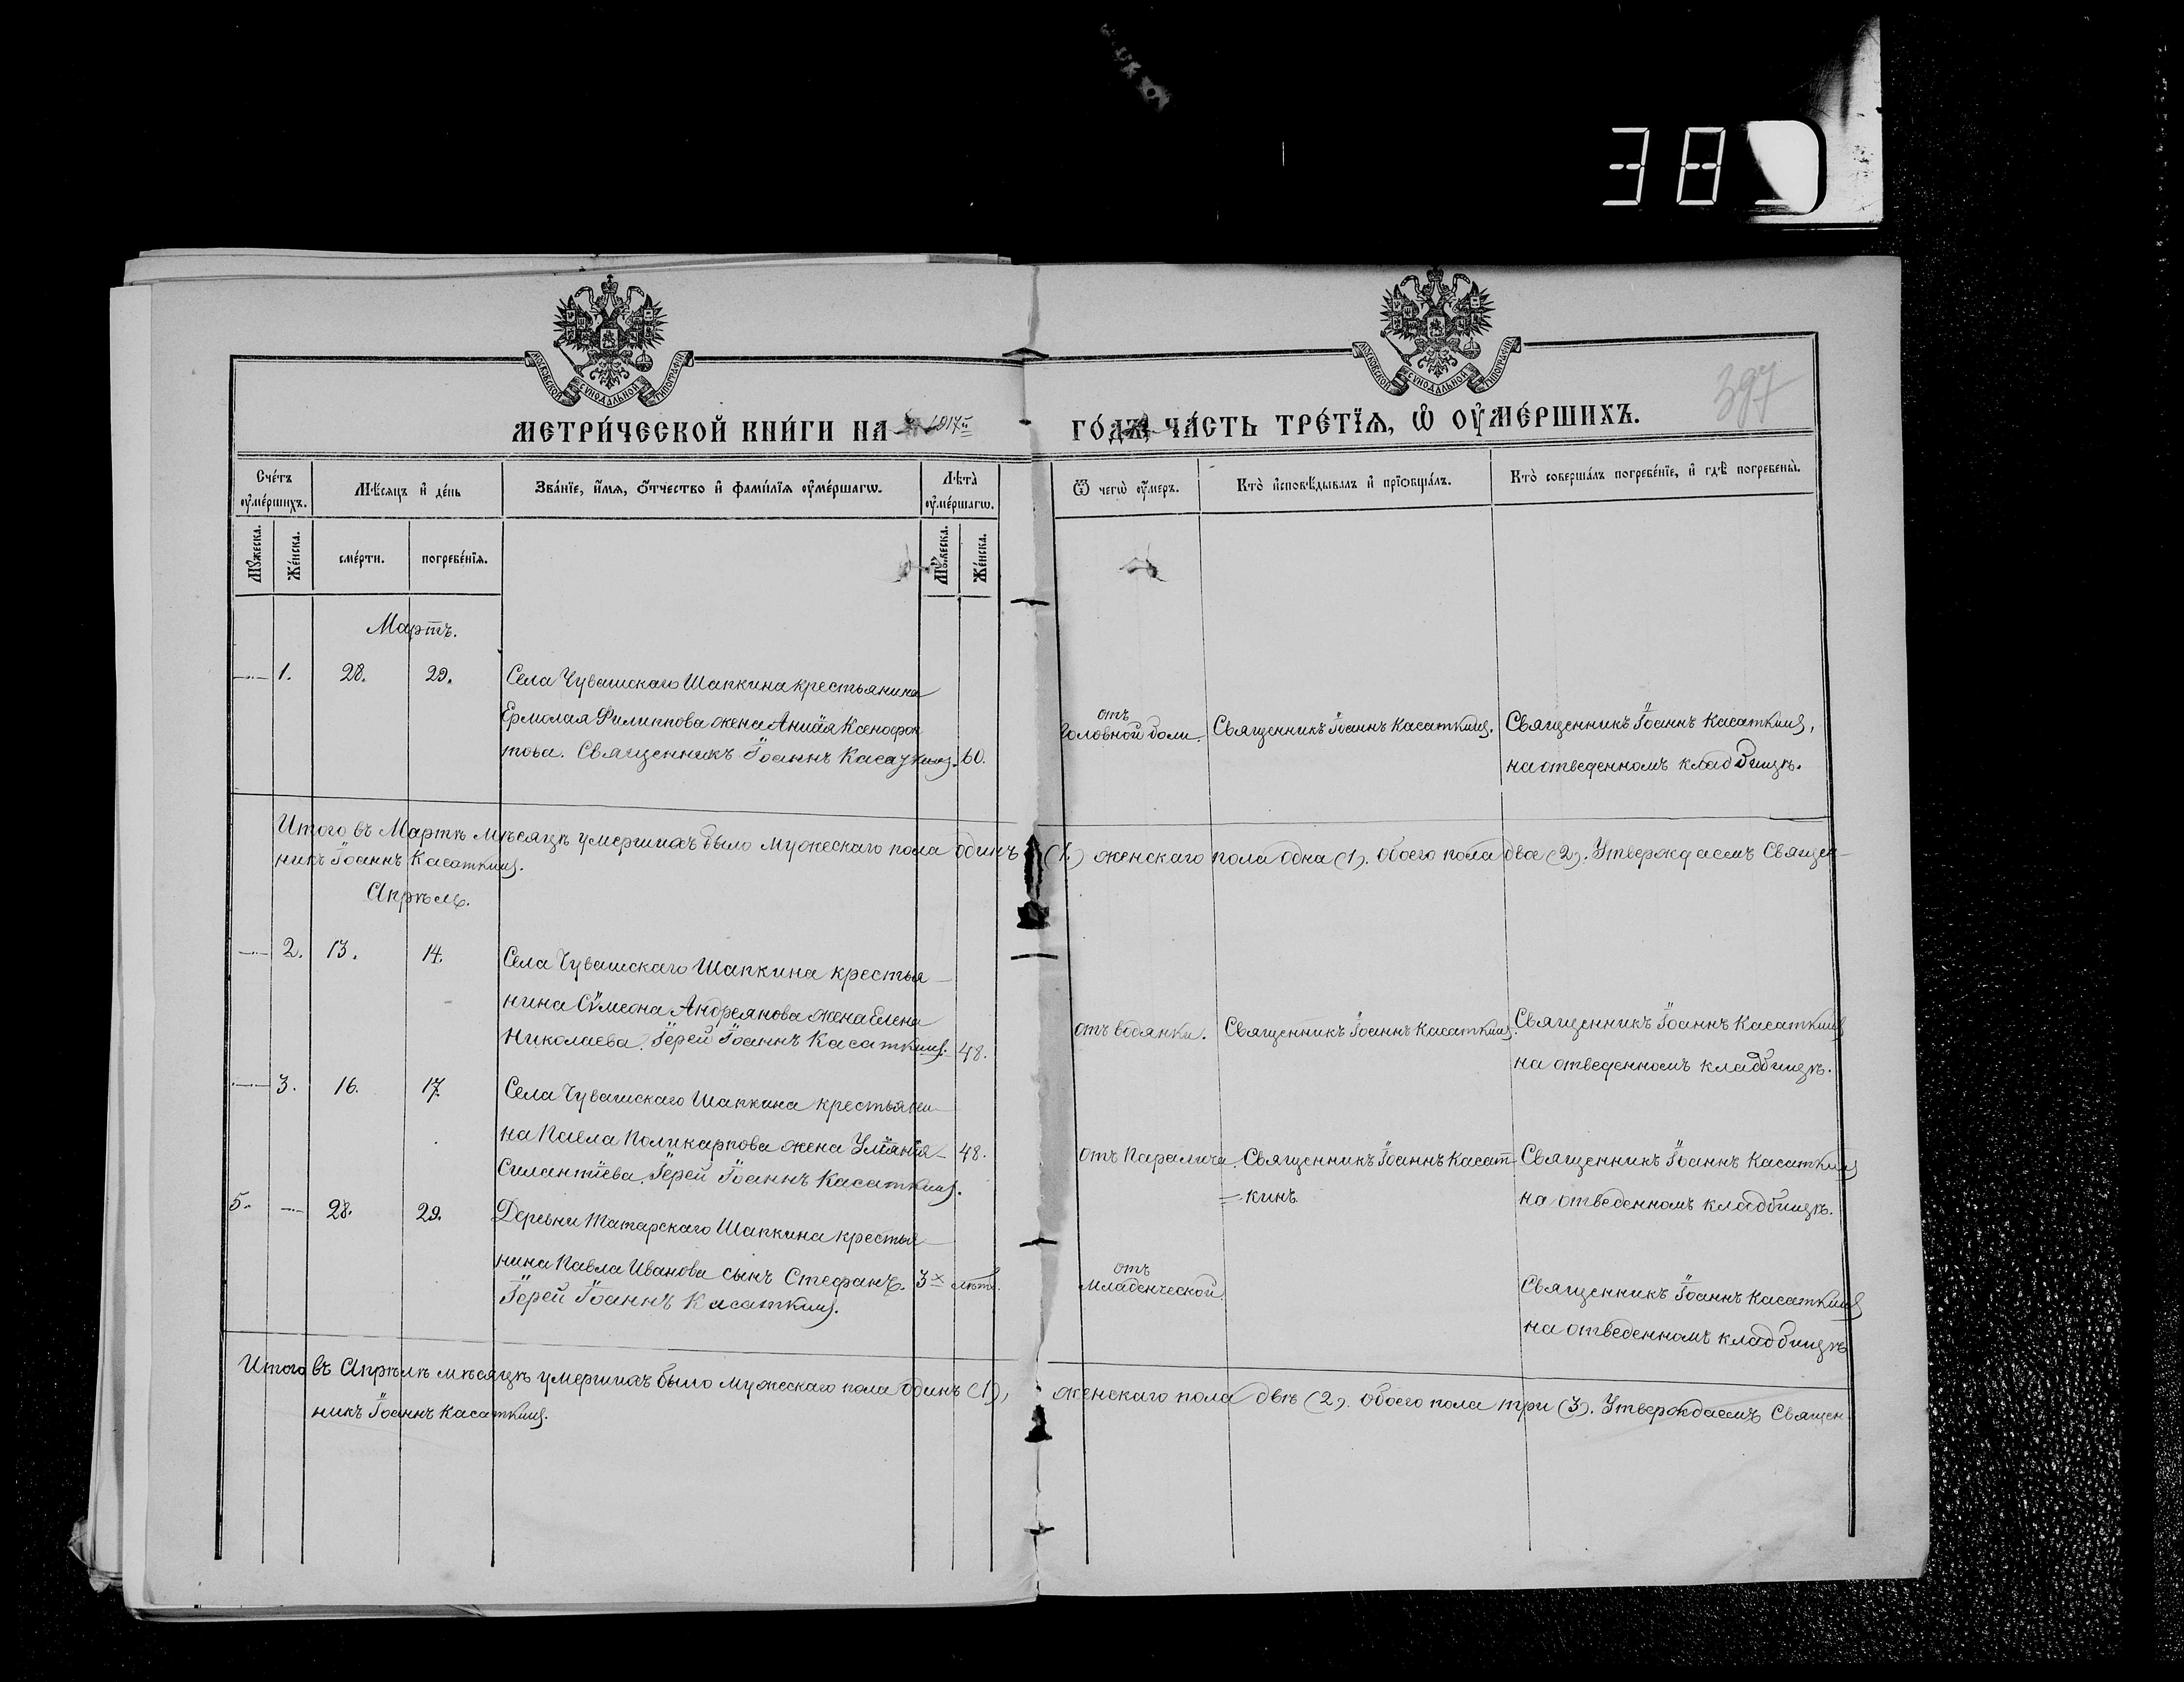 38
МОСКОВСКОЙ СѴНОДАЛЬНОЙ ТИПОГРАФІИ
МОСКОВСКОЙ СѴНОДАЛЬНОЙ ТИПОГРАФІИ
397
МЕТРИ́ЧЕСКОЙ КНИ́ГИ НА 1917й ГО́ДЪ ЧА́СТЬ ТРЕ́ТІѦ, Ѡ ОУ҆МЕ́РШИХЪ.
Сче́тъ оу҆ме́ршихъ.
Мѣ́сяцъ и҆ де́нь
Зва́нїе, и҆́мя, ѻ҆́тчество и҆ фами́лїя оу҆ме́ршагѡ.
Лѣ́та̀ оу҆ме́ршагѡ.
Ѿ чегѡ̀ оу҆́меръ.
Кто̀ и҆сповѣ́дывалъ и҆ прїѡбща́лъ.
Кто̀ соверша́лъ погребе́нїе, и҆ гдѣ̀ погребены̀.
Мꙋ́жеска.
Же́нска.
сме́рти.
погребе́нїя.
Мꙋ́жеска.
Же́нска.
Мартъ.
1. 28. 29. Села Чувашскаго Шапкина крестьянина
Ермолая Филиппова жена Аниѳія Ксенофон
това. Священникъ Іоаннъ Касаткинъ. 60.
отъ
головной боли. Священникъ Іоаннъ Касаткинъ. Священникъ Іоаннъ Касаткинъ,
на отведенномъ кладбищѣ.
Итого въ Мартѣ мѣсяцѣ умершихъ было мужескаго пола одинъ (1.) женскаго пола одна (1). обоего пола двое (2). Утверждаемъ Священ-
никъ Іоаннъ Касаткинъ.
Апрѣль.
2. 13. 14. Села Чувашскаго Шапкина крестья-
нина Сѵмеона Андреянова жена Елена
Николаева. Іерей Іоаннъ Касаткинъ. 48.
отъ водянки. Священникъ Іоаннъ Касаткинъ. Священникъ Іоаннъ Касаткинъ
на отведенномъ кладбищѣ.
3. 16. 17. Села Чувашскаго Шапкина крестьяни-
на Павла Поликарпова жена Уліанія 48.
Силантіева. Іерей Іоаннъ Касаткинъ.
отъ Паралича. Священникъ Іоаннъ Касат- Священникъ Іоаннъ Касаткинъ
кинъ на отведенномъ кладбищѣ.
5. 28. 29. Деревни Татарскаго Шапкина крестья-
нина Павла Иванова сынъ Стефанъ. 3х лѣтъ.
Іерей Іоаннъ Касаткинъ.
отъ
младенческой. Священникъ Іоаннъ Касаткинъ
на отведенномъ кладбищѣ
Итого въ Апрѣлѣ мѣсяцѣ умершихъ было мужескаго пола одинъ (1), женскаго пола двѣ (2). обоего пола три (3). Утверждаемъ Священ-
никъ Іоаннъ Касаткинъ.